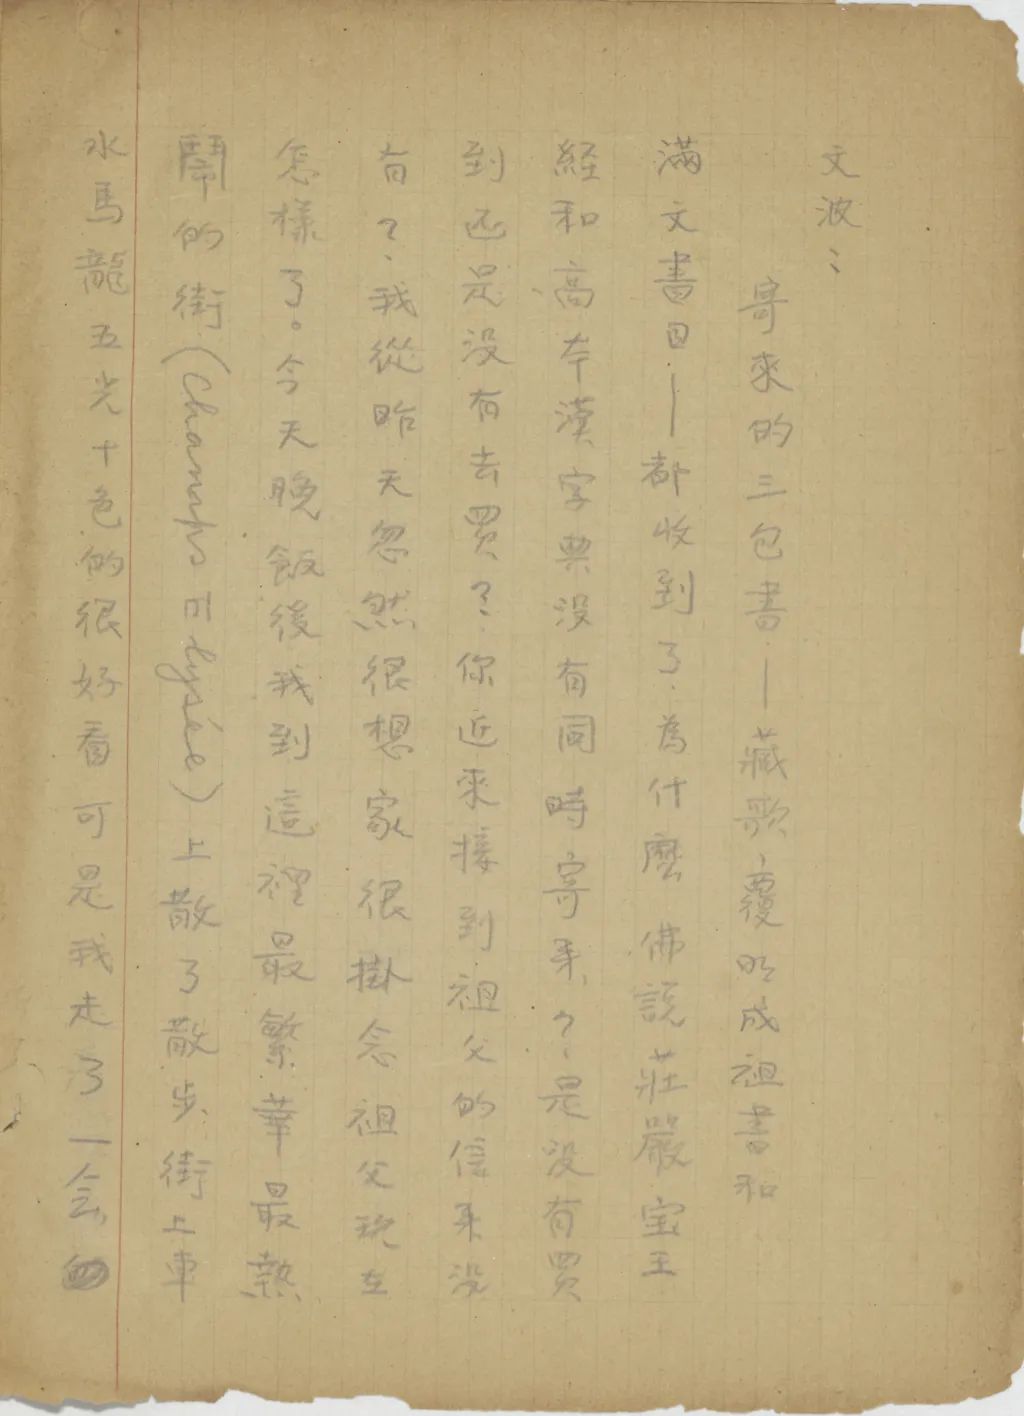 文波：
寄來的三包書——藏歌，覆明成祖書和
滿文書目——都收到了．為什麼佛說莊嚴宝王
経和高本漢字典没有同時寄来？．是没有買
到还是没有去買？．你近來接到祖父的信来没
有？．我從昨天忽然很想家很掛念祖父現在
怎樣了。今天晚飯後我到這裡最繁華最熱
鬧的街(Champs Elysée)上散了散步，街上車
水馬龍五光十色的很好看可是我走了一会，